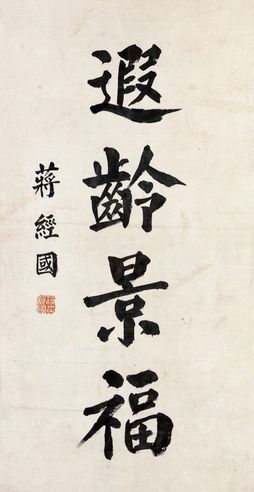 遐齡景福
蔣經國